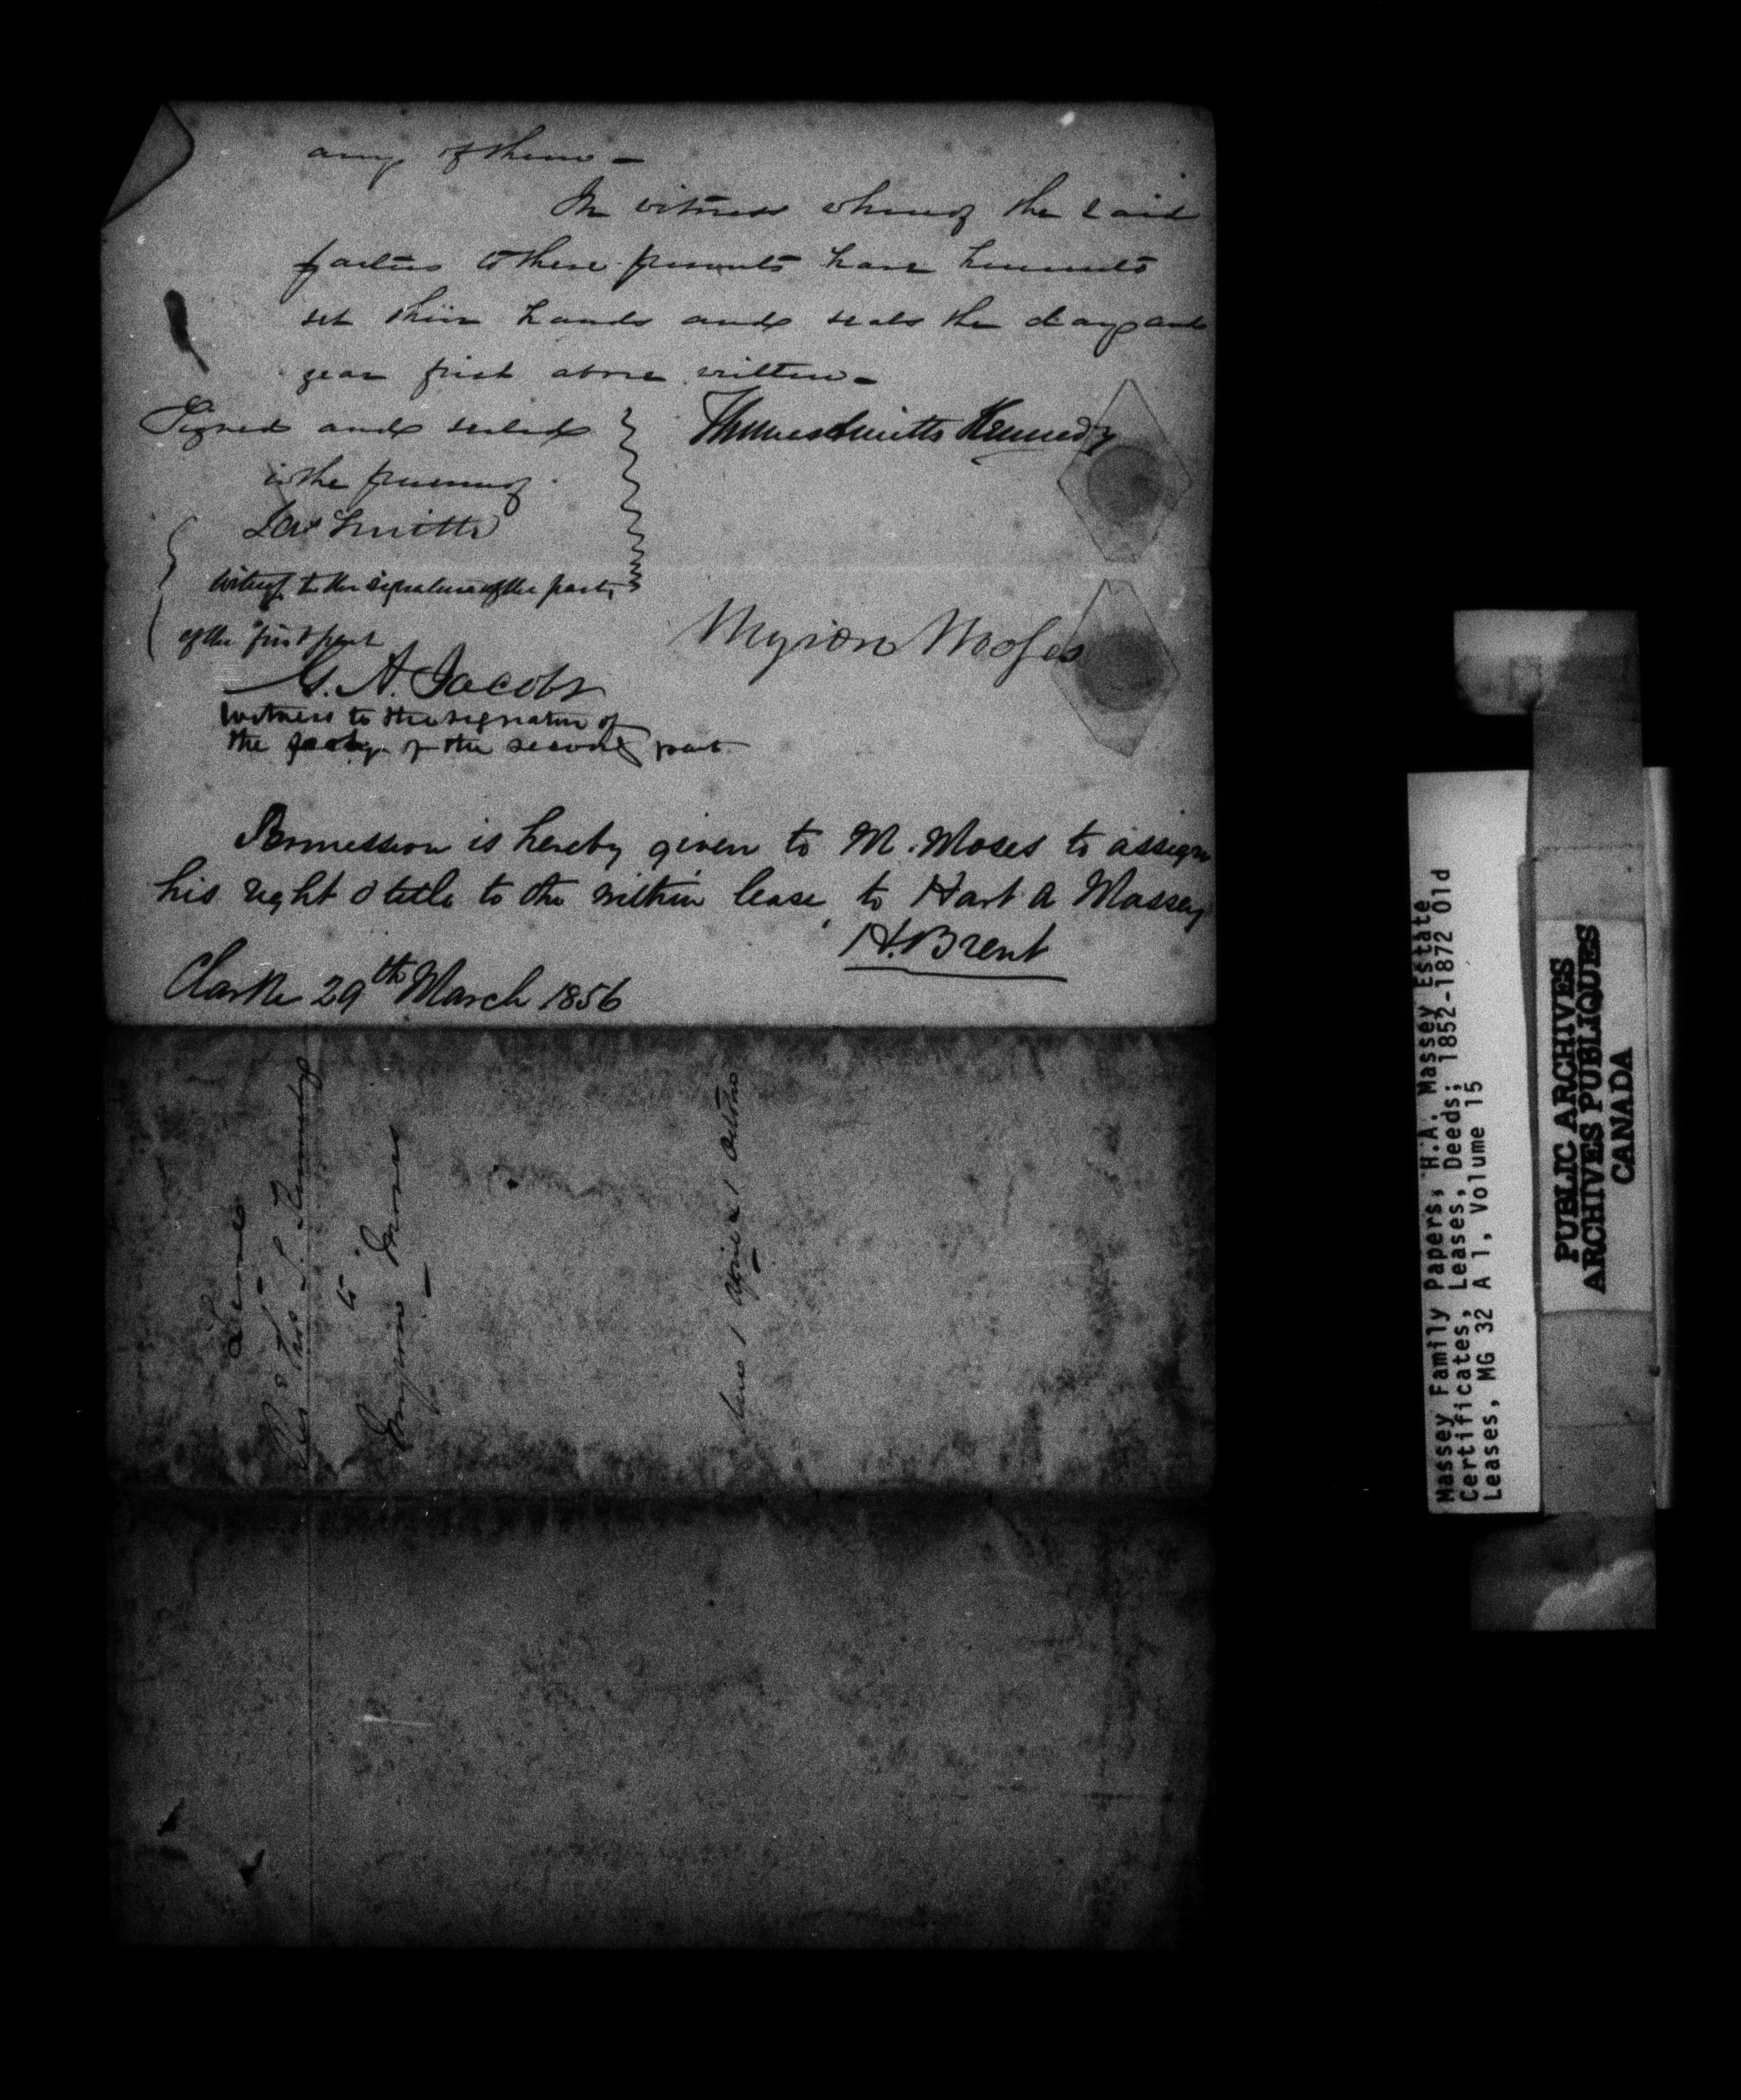 any of them -
In witness whereof the said
parties to these presents have hereunto
set their hands and seals the day and
year first above written -
Signed and sealed
in the presence of
Smith
Thomas Smith Kennedy
witness to the signature of the party
of the first part
Myron Moses
G. A. Jacobs
witness to the signature of
the party of the second part
Permission is hereby given to M. Moses to assign
his right & title to the within lease, to Hart A Massey
H. Brent
Clarke 29th March 1856
Lease
Thos S. Kennedy
to
Myron Moses
1 April & 1 October
Massey Family Papers; H.A. Massey Estate
Certificates, Leases, Deeds; 1852-1872 Old
Leases, MG 32 A 1, Volume 15
PUBLIC ARCHIVES
ARCHIVES PUBLIQUES
CANADA